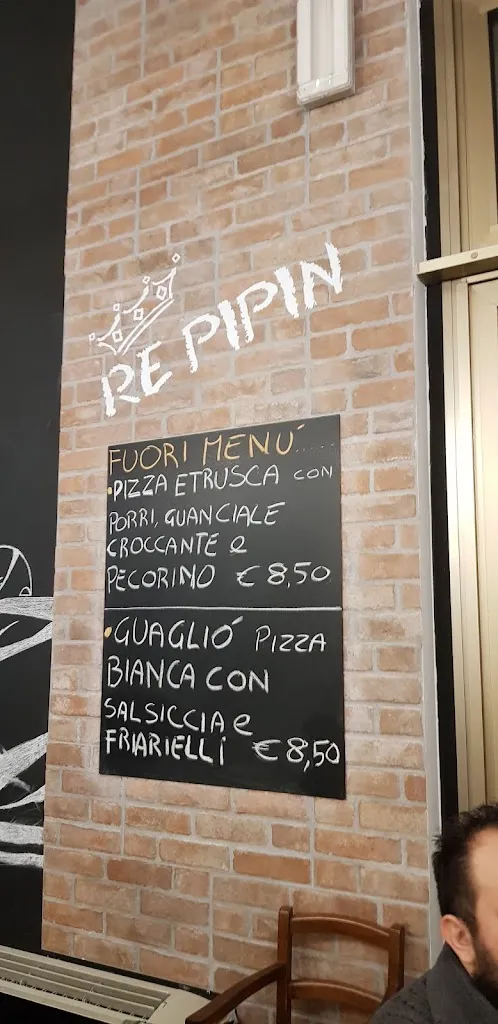 RE PIPIN
FUORI MENÚ.....
•PIZZA ETRUSCA CON
PORRI, GUANCIALE
CROCCANTE e
PECORINO € 8,50
•GUAGLIÓ PIZZA
BIANCA CON
SALSICCIA e
FRIARIELLI € 8,50